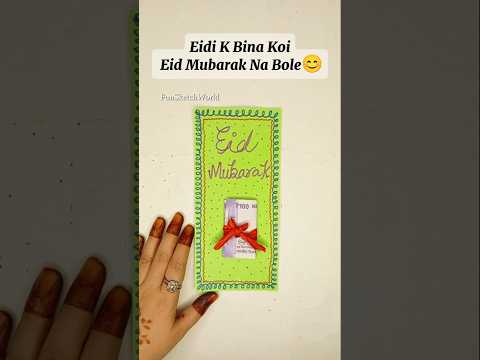 Eidi K Bina Koi
Eid Mubarak Na Bole😊
FunSketchWorld
Eid
Mubarak
₹100